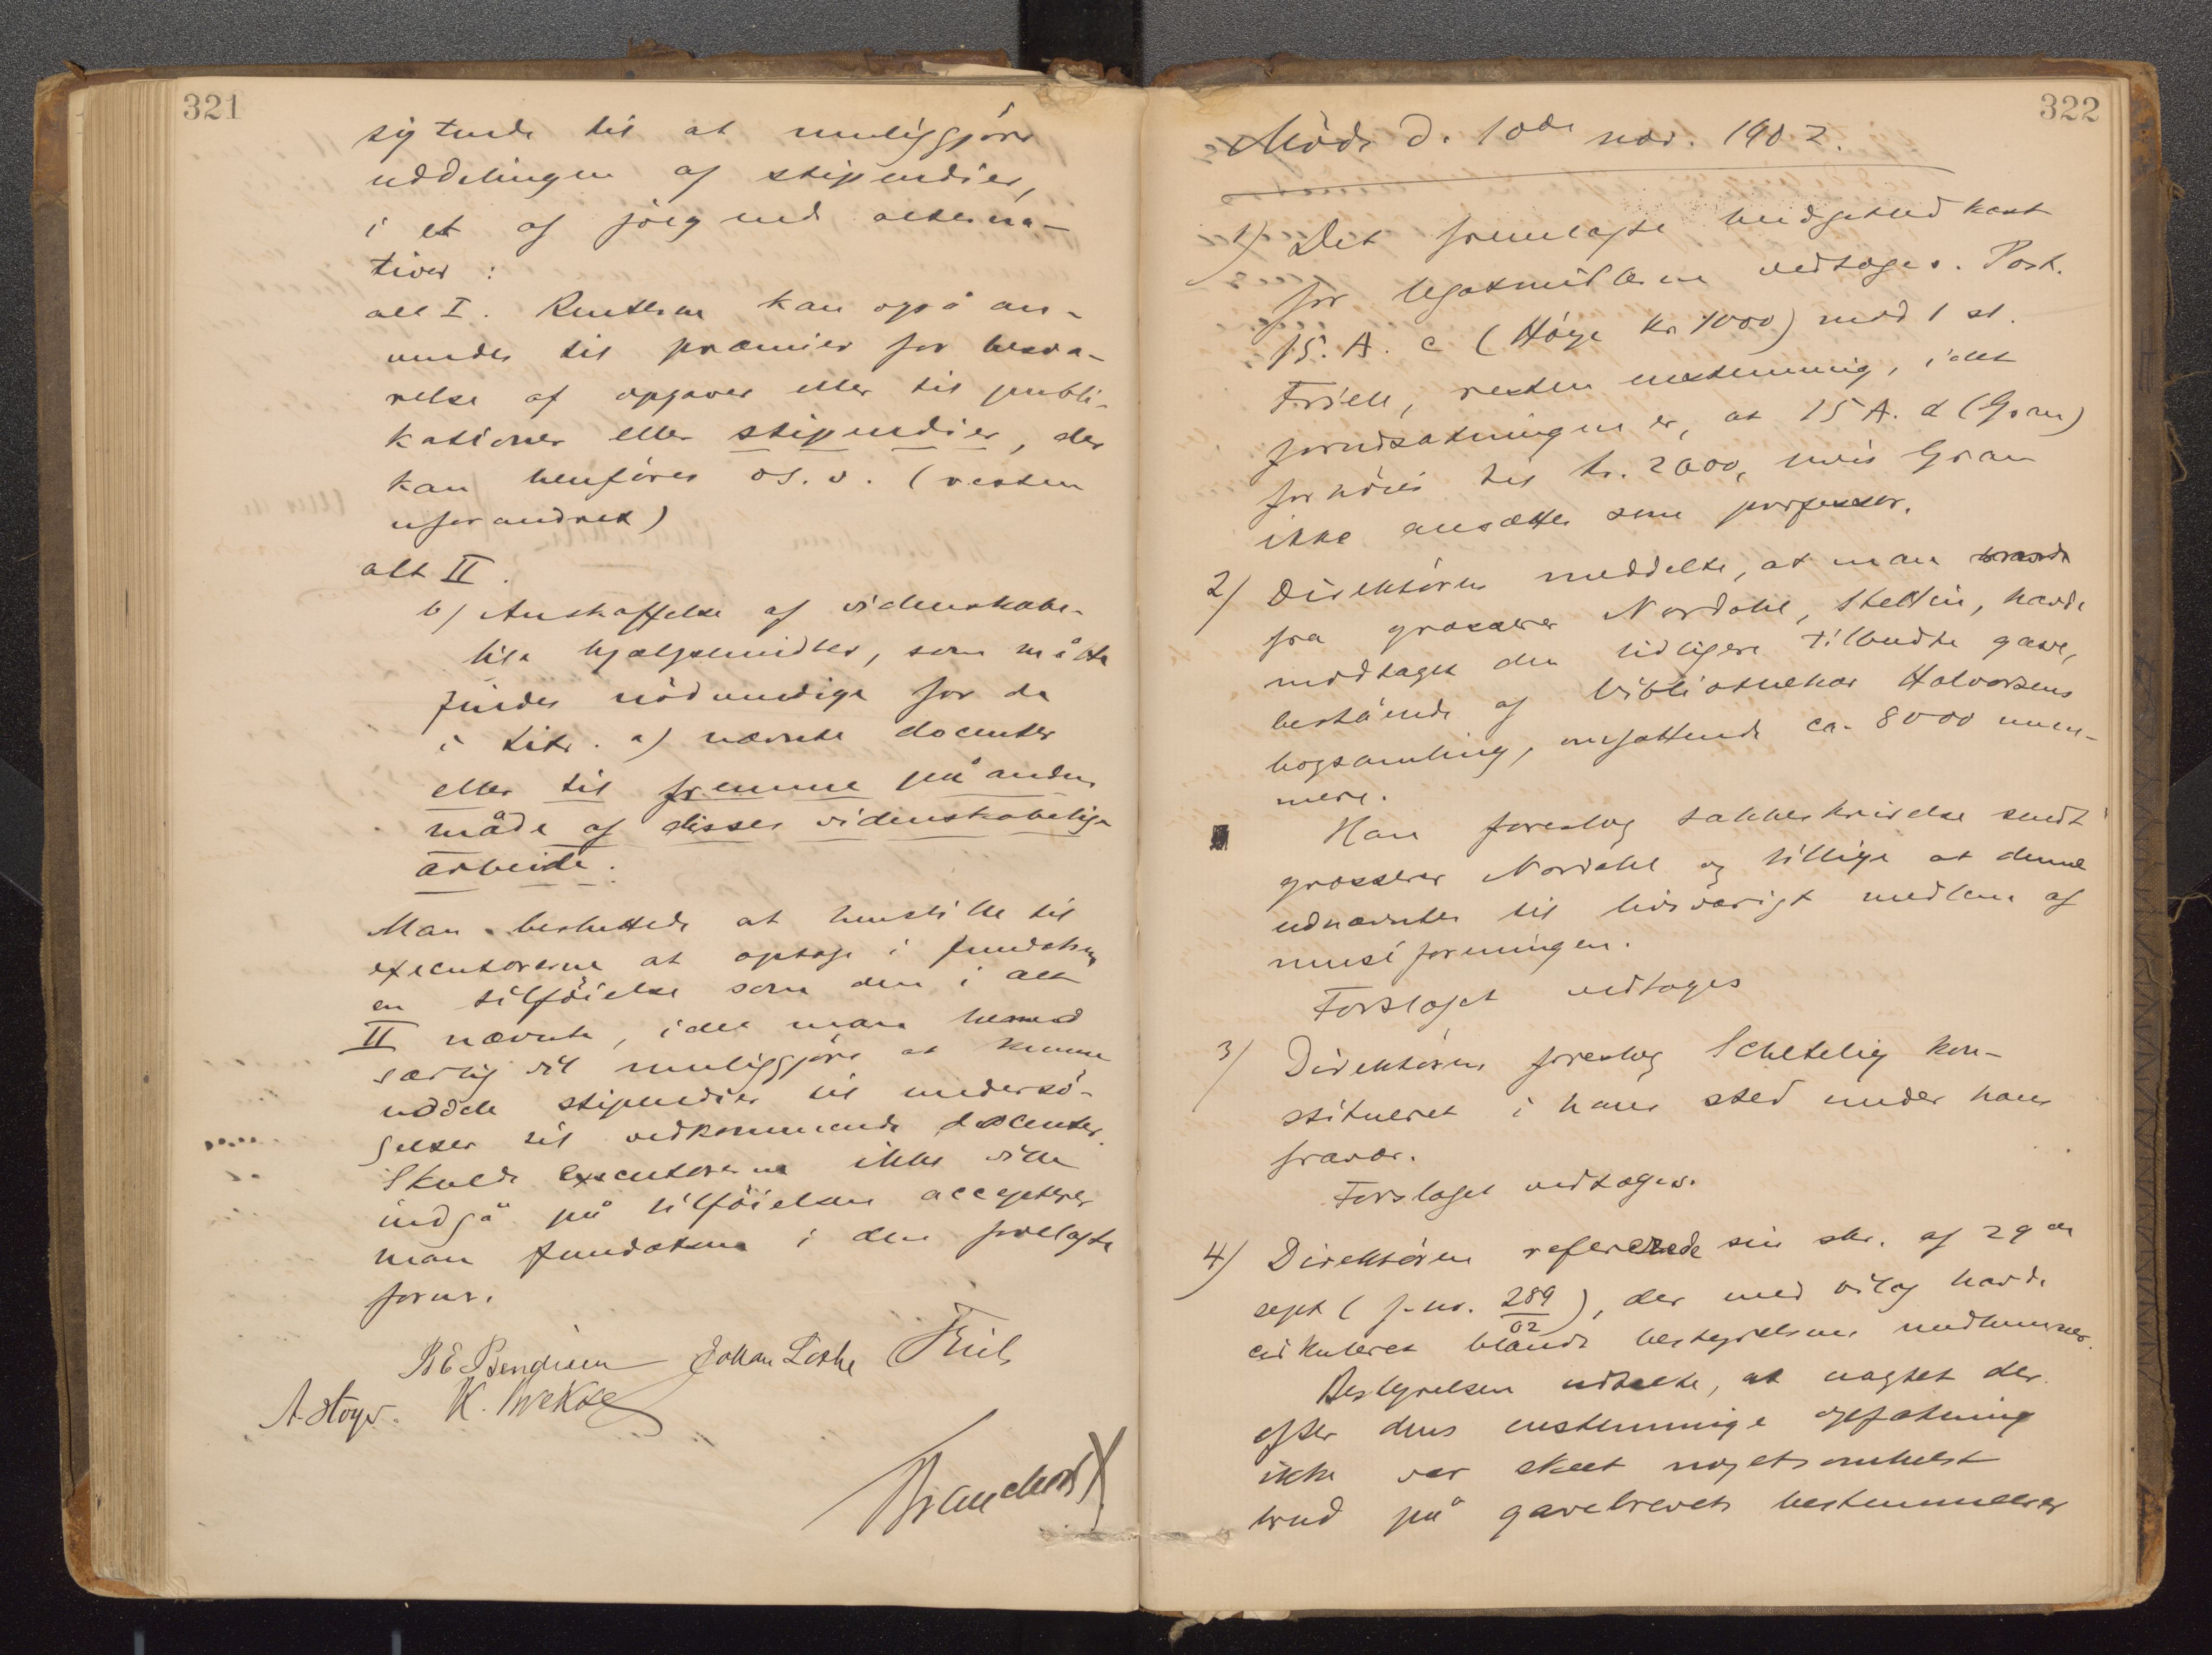 321
sigtende til at muliggjøre
uddelingen af stipendier,
i et af følgende alterna-
tiver:
alt I. Renterne kan også an-
vendes til præmier for besva-
relse af opgaver eller til publi-
kationer eller stipendier, der
kan henføres o.s.v. (resten
uforandret)
alt II.
b) Anskaffelse af videnskabe-
lige hjælpemidler, som måtte
findes nødvendige for de
i litr. a) nævnte docenter
eller til fremme på anden
måde af disses videnskabelige
arbeide.
Man besluttede at henstille til
executorerne at optage i fundatsen
en tilføielse som den i alt
II nævnte, idet man herved
særlig vil muliggjøre at kunne
uddele stipendier til undersø-
gelser til vedkommende docenter.
Skulde executorerne ikke ville
indgå på tilføielsen accepterer
man fundatsen i den forelagte
form.
B E Bendixen Johan Lothe Friele
A. Høye. K. Brekke
Brunchorst
322
Møde d. 10de nov. 1902.
1) Det fremlagte budgetudkast
for legatmidlerne vedtoges. Post.
15. A. c (Høye kr 1000) mod 1 st.
Friele, resten enstemmig, idet
forudsætningen er, at 15 A. d (Gran)
forhøies til kr. 2000, hvis Gran
ikke ansættes som professor.
2) Direktøren meddelte, at man
fra grosserer Nordahl, Stettin, havde
modtaget den tidligere tilbudte gave,
bestående af bibliothekar Halvorsens
bogsamling, omfattende ca. 8000 num-
mere.
Han foreslog takkeskrivelse sendt
grosserer Nordahl og tillige at denne
udnævntes til livsvarigt medlem af
museiforeningen.
Forslaget vedtoges
3) Direktøren foreslog Schetelig kon-
stitueret i hans sted under hans
fravær.
Forslaget vedtoges.
4) Direktøren refererede sin skr. af 29de
sept (j-no. 289/02), der med bilag havde
cirkuleret blandt bestyrelsens medlemmer.
Bestyrelsen udtalte, at uagtet der
efter dens enstemmige opfatning
ikke var skeet nogetsomhelst
brud på gavebrevets bestemmelser